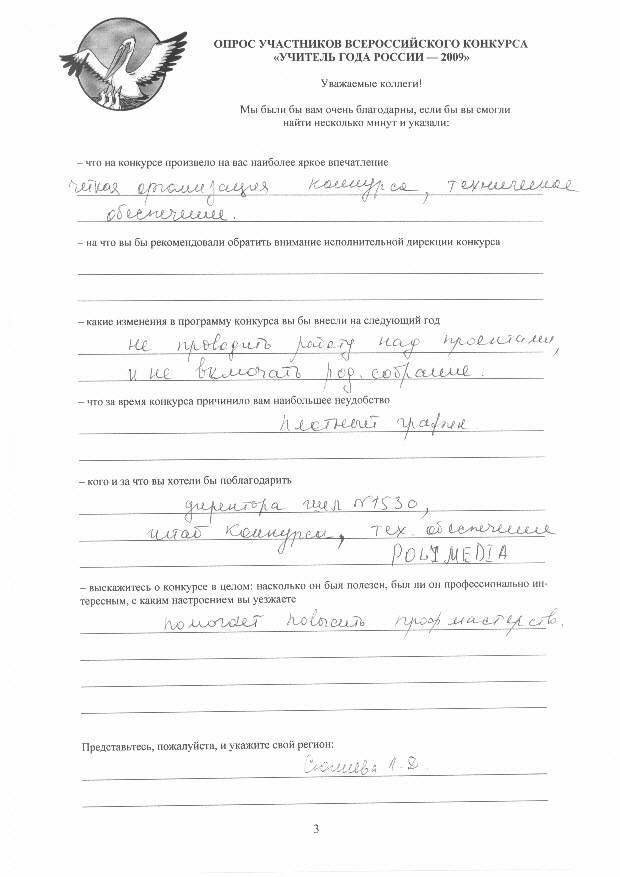 ОПРОС УЧАСТНИКОВ ВСЕРОССИЙСКОГО КОНКУРСА
«УЧИТЕЛЬ ГОДА РОССИИ — 2009»
Уважаемые коллеги!
Мы были бы вам очень благодарны, если бы вы смогли
найти несколько минут и указали:
– что на конкурсе произвело на вас наиболее яркое впечатление
четкая организация конкурса, техническое
обеспечение.
– на что вы бы рекомендовали обратить внимание исполнительной дирекции конкурса
– какие изменения в программу конкурса вы бы внесли на следующий год
не проводить работу над проектами,
и не включать род. собрание.
– что за время конкурса причинило вам наибольшее неудобство
плотный график
– кого и за что вы хотели бы поблагодарить
директора шк №1530,
штаб конкурса, тех. обеспечение
POLYMEDIA
– выскажитесь о конкурсе в целом: насколько он был полезен, был ли он профессионально ин-
тересным, с каким настроением вы уезжаете
помогает повысить проф мастерство.
Представьтесь, пожалуйста, и укажите свой регион:
3